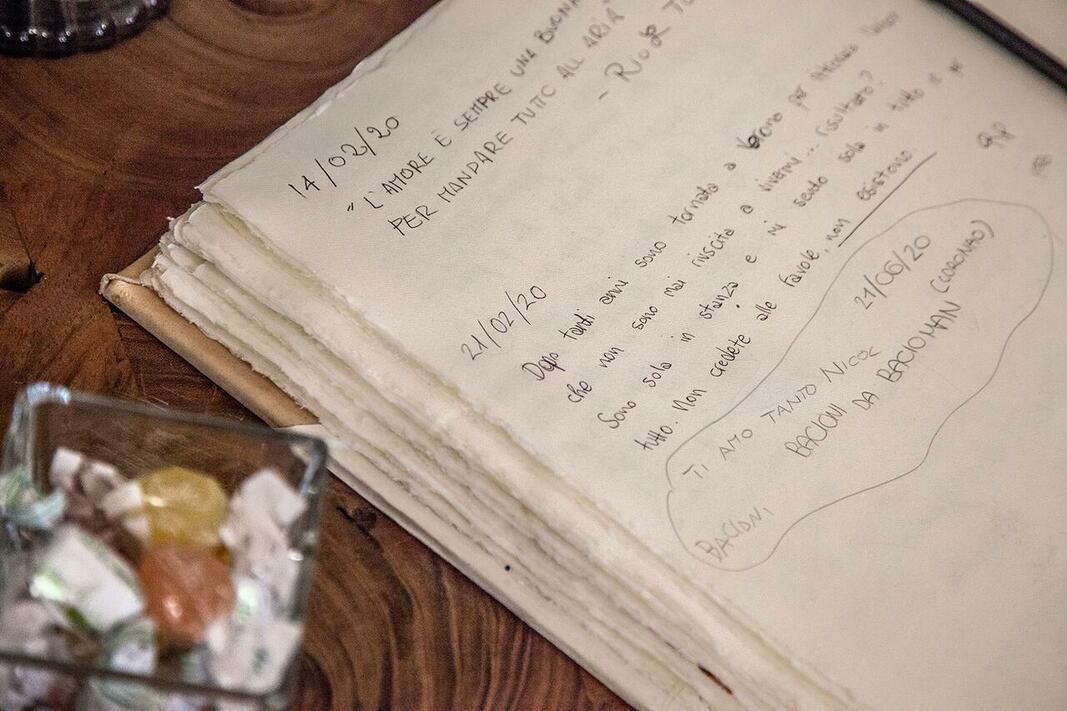 14/02/20
"L'AMORE È SEMPRE UNA BUGNA
PER MANDARE TUTTO ALL'ARIA"
21/02/20
Dopo tanti anni sono tornata a Verona per
che non sono mai riuscita a vivermi... risultato?
Sono sola in stanza e mi sento sola in tutto e per
tutto. Non credete alle favole, non esistono.
21/06/20
TI AMO TANTO NICOL
BACIONI DA BACIOMAN (CORONATO)
BACIONI